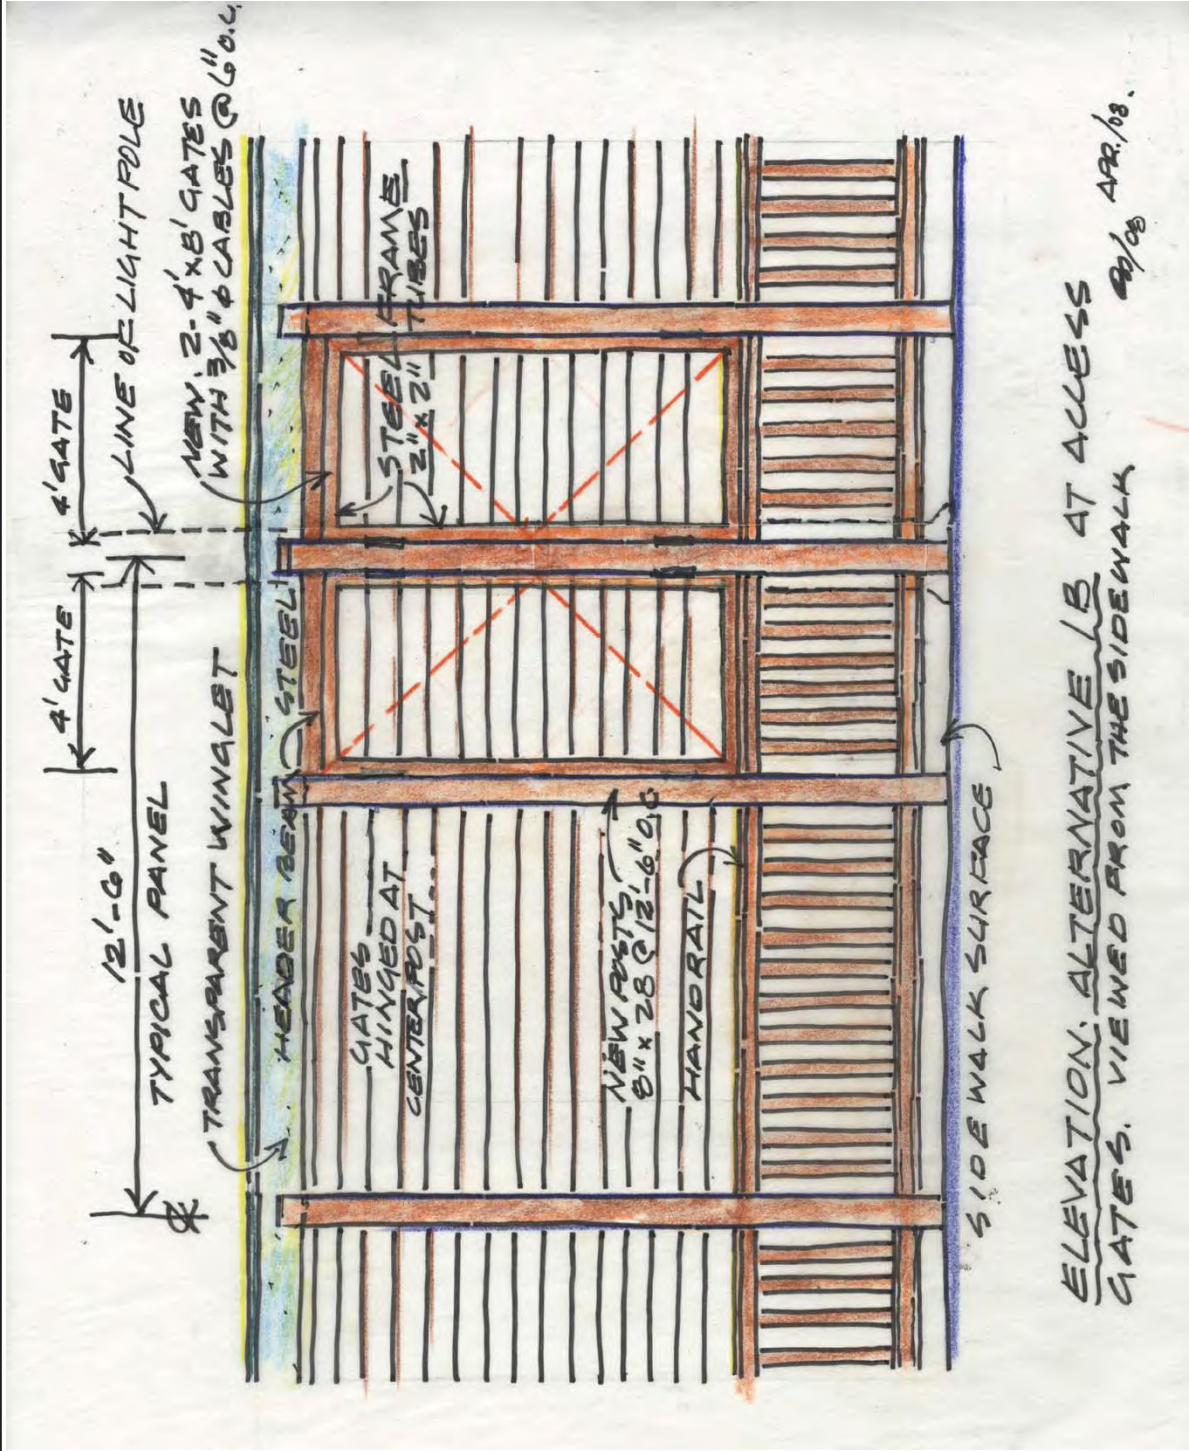 4' GATE
4' GATE
LINE OF LIGHT POLE
12'-6"
TYPICAL PANEL
NEW. 2-4' x 8' GATES
WITH 3/8" ϕ CABLES @ 6" O.C.
TRANSPARENT WINGLET
HEADER BEAM STEEL
STEEL FRAME
2" x 2" TUBES
GATES
HINGED AT
CENTER POST
NEW POSTS
8" x 28 @ 12'-6" O.C
HANDRAIL
SIDEWALK SURFACE
ELEVATION. ALTERNATIVE 1B AT ACCESS
GATES. VIEWED FROM THE SIDEWALK
APR./08.